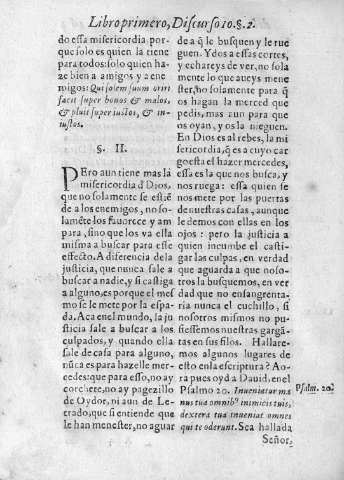 Libro primero, Discurso 10. §. 2.
do essa misericordia por-
que solo es quien la tiene
para todos: solo quien ha-
ze bien a amigos y a ene
migos: Qui solem suum oriri
facit super bonos & malos,
& pluit super iustos, & in-
iustos.
§. II.
PEro aun tiene mas la
misericordia d̃ Dios,
que no solamente se estiẽ
de a los enemigos, no so-
lamẽte los fauorece y am
para, sino que los va ella
misma a buscar para esse
effecto. A diferencia de la
justicia, que nunca sale a
buscar a nadie, y si castiga
a alguno, es porque el mes
mo se le mete por la espa-
da. Aca en el mundo, la ju
sticia sale a buscar a los
culpados, y quando ella
sale de casa para alguno,
nũca es para hazelle mer-
cedes: que para esso, no ay
corchete, no ay pagezillo
de Oydor, ni aun de Le-
trado, que si entiende que
le han menester, no aguar
de a q̃ le busquen y le rue
guen. Ydos a essas cortes,
y echareys de ver, no sola
mente lo que aueys mene
ster, no solamente para q̃
os hagan la merced que
pedis, mas aun para que
os oyan, y os la nieguen.
En Dios es al rebes, la mi
sericordia, q̃ es a cuyo car
go esta el hazer mercedes,
essa es la que nos busca, y
nos ruega: essa quien se
nos mete por las puertas
de nuestras casas, aunque
le demos con ellas en los
ojos: pero la justicia a
quien incumbe el casti-
gar las culpas, en verdad
que aguarda a que noso-
tros la busquemos, en ver
dad que no ensangrenta-
ria nunca el cuchillo, si
nosotros mismos no pu-
siessemos nuestras gargã-
tas en sus filos. Hallare-
mos algunos lugares de
esto en la escriptura? Ao-
ra pues oyd a Dauid, en el
Psalmo 20. Inueniatur ma
nus tua omnibꝰ inimicis tuis,
dextera tua inueniat omnes
qui te oderunt. Sea hallada
Psalm. 20.
Señor,